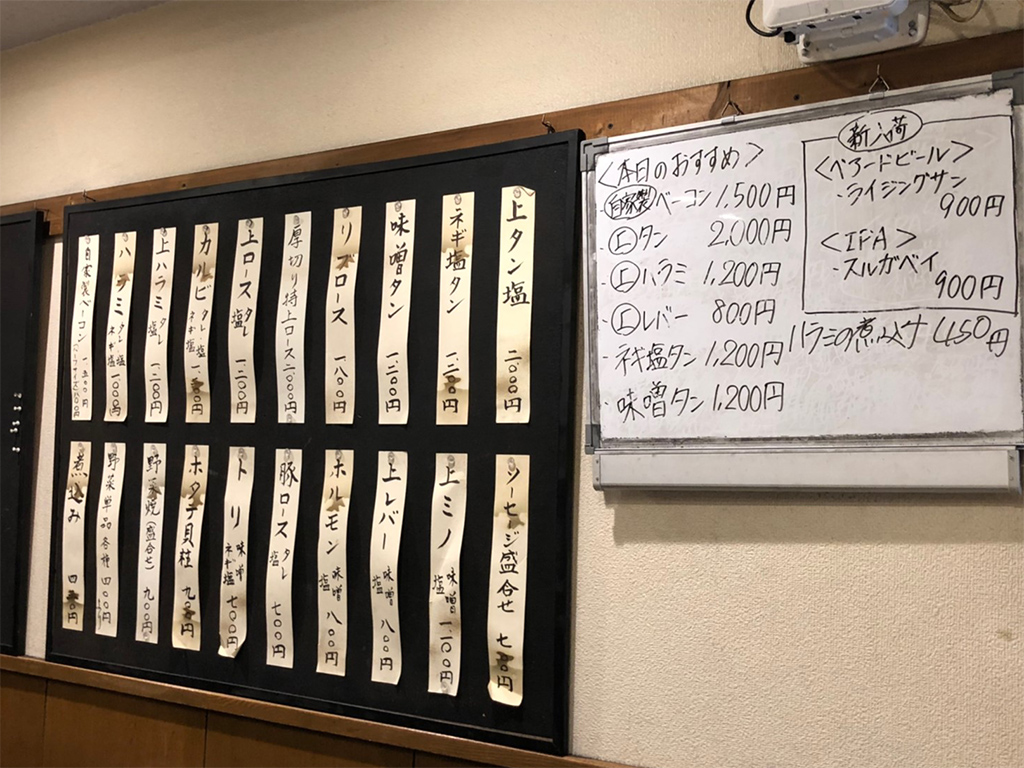 上タン塩 二〇〇〇円
ネギ塩タン 一、二〇〇円
味噌タン 一二〇〇円
リブロース 一八〇〇円
厚切り特上ロース 二〇〇〇円
上ロース タレ 塩 一二〇〇円
カルビ タレ・塩 ネギ塩
上ハラミ タレ 塩 一二〇〇円
ハラミ タレ 塩 ネギ塩 一〇〇〇円
自家製ベーコン 一五〇〇円
ソーセージ盛合せ
上ミノ 味噌 塩 一、一〇〇円
上レバー 味噌 塩 八〇〇円
ホルモン 味噌 塩 八〇〇円
豚ロース タレ 塩 七〇〇円
トリ 味噌 ネギ塩 七〇〇円
ホタテ貝柱 九〇〇円
野菜焼(盛合せ) 九〇〇円
野菜単品各種 四〇〇円より
煮込み
<本日のおすすめ>
・自家製ベーコン 1,500円
・上タン 2,000円
・上ハラミ 1,200円
・上レバー 800円
・ネギ塩タン 1,200円
・味噌タン 1,200円
新入荷
<ベアードビール>
・ライジングサン
900円
<IPA>
・スルガベイ
900円
ハラミの煮込み 450円